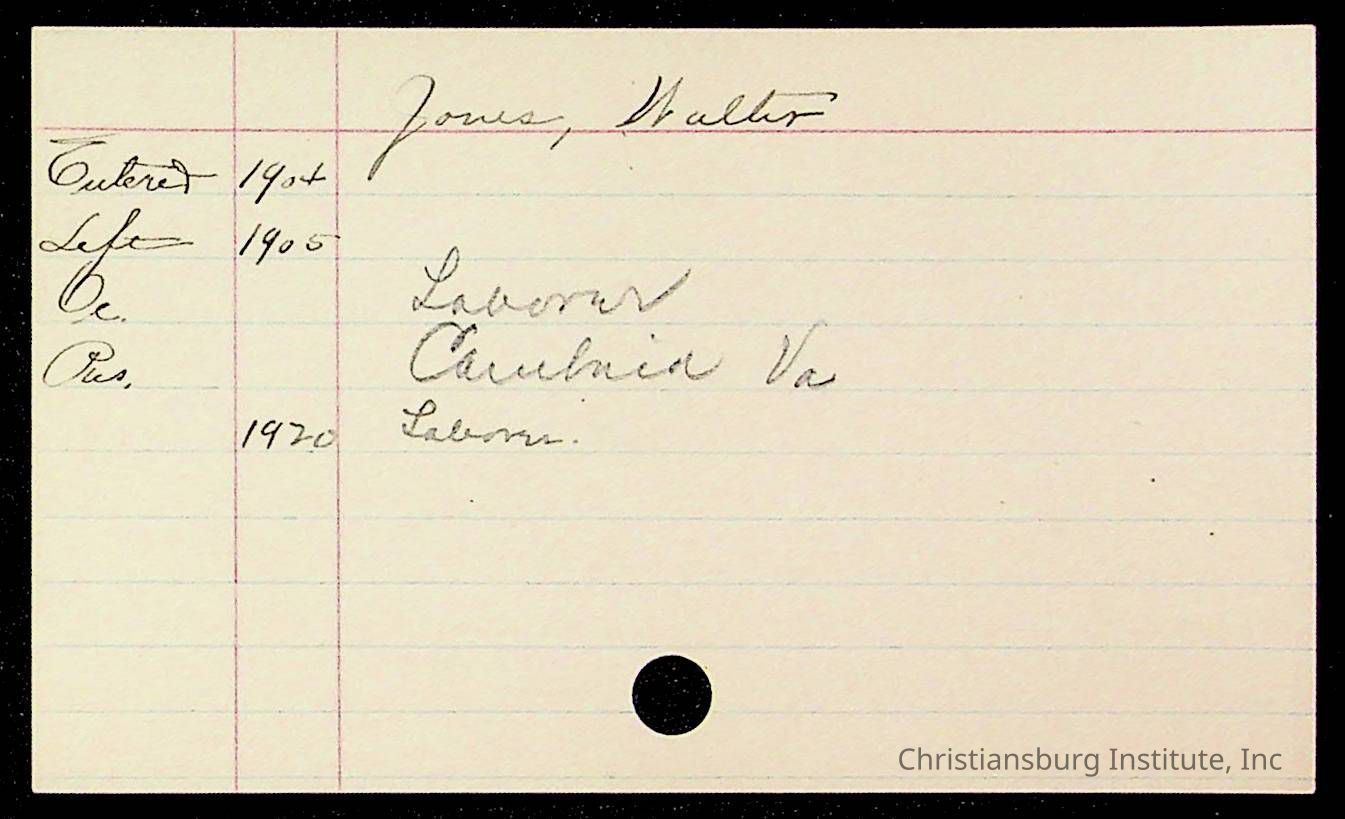 Jones, Walter
Entered 1904
Left 1905
Oc. Laborer
Res. Cambria Va
1920 Laborer.
Christiansburg Institute, Inc